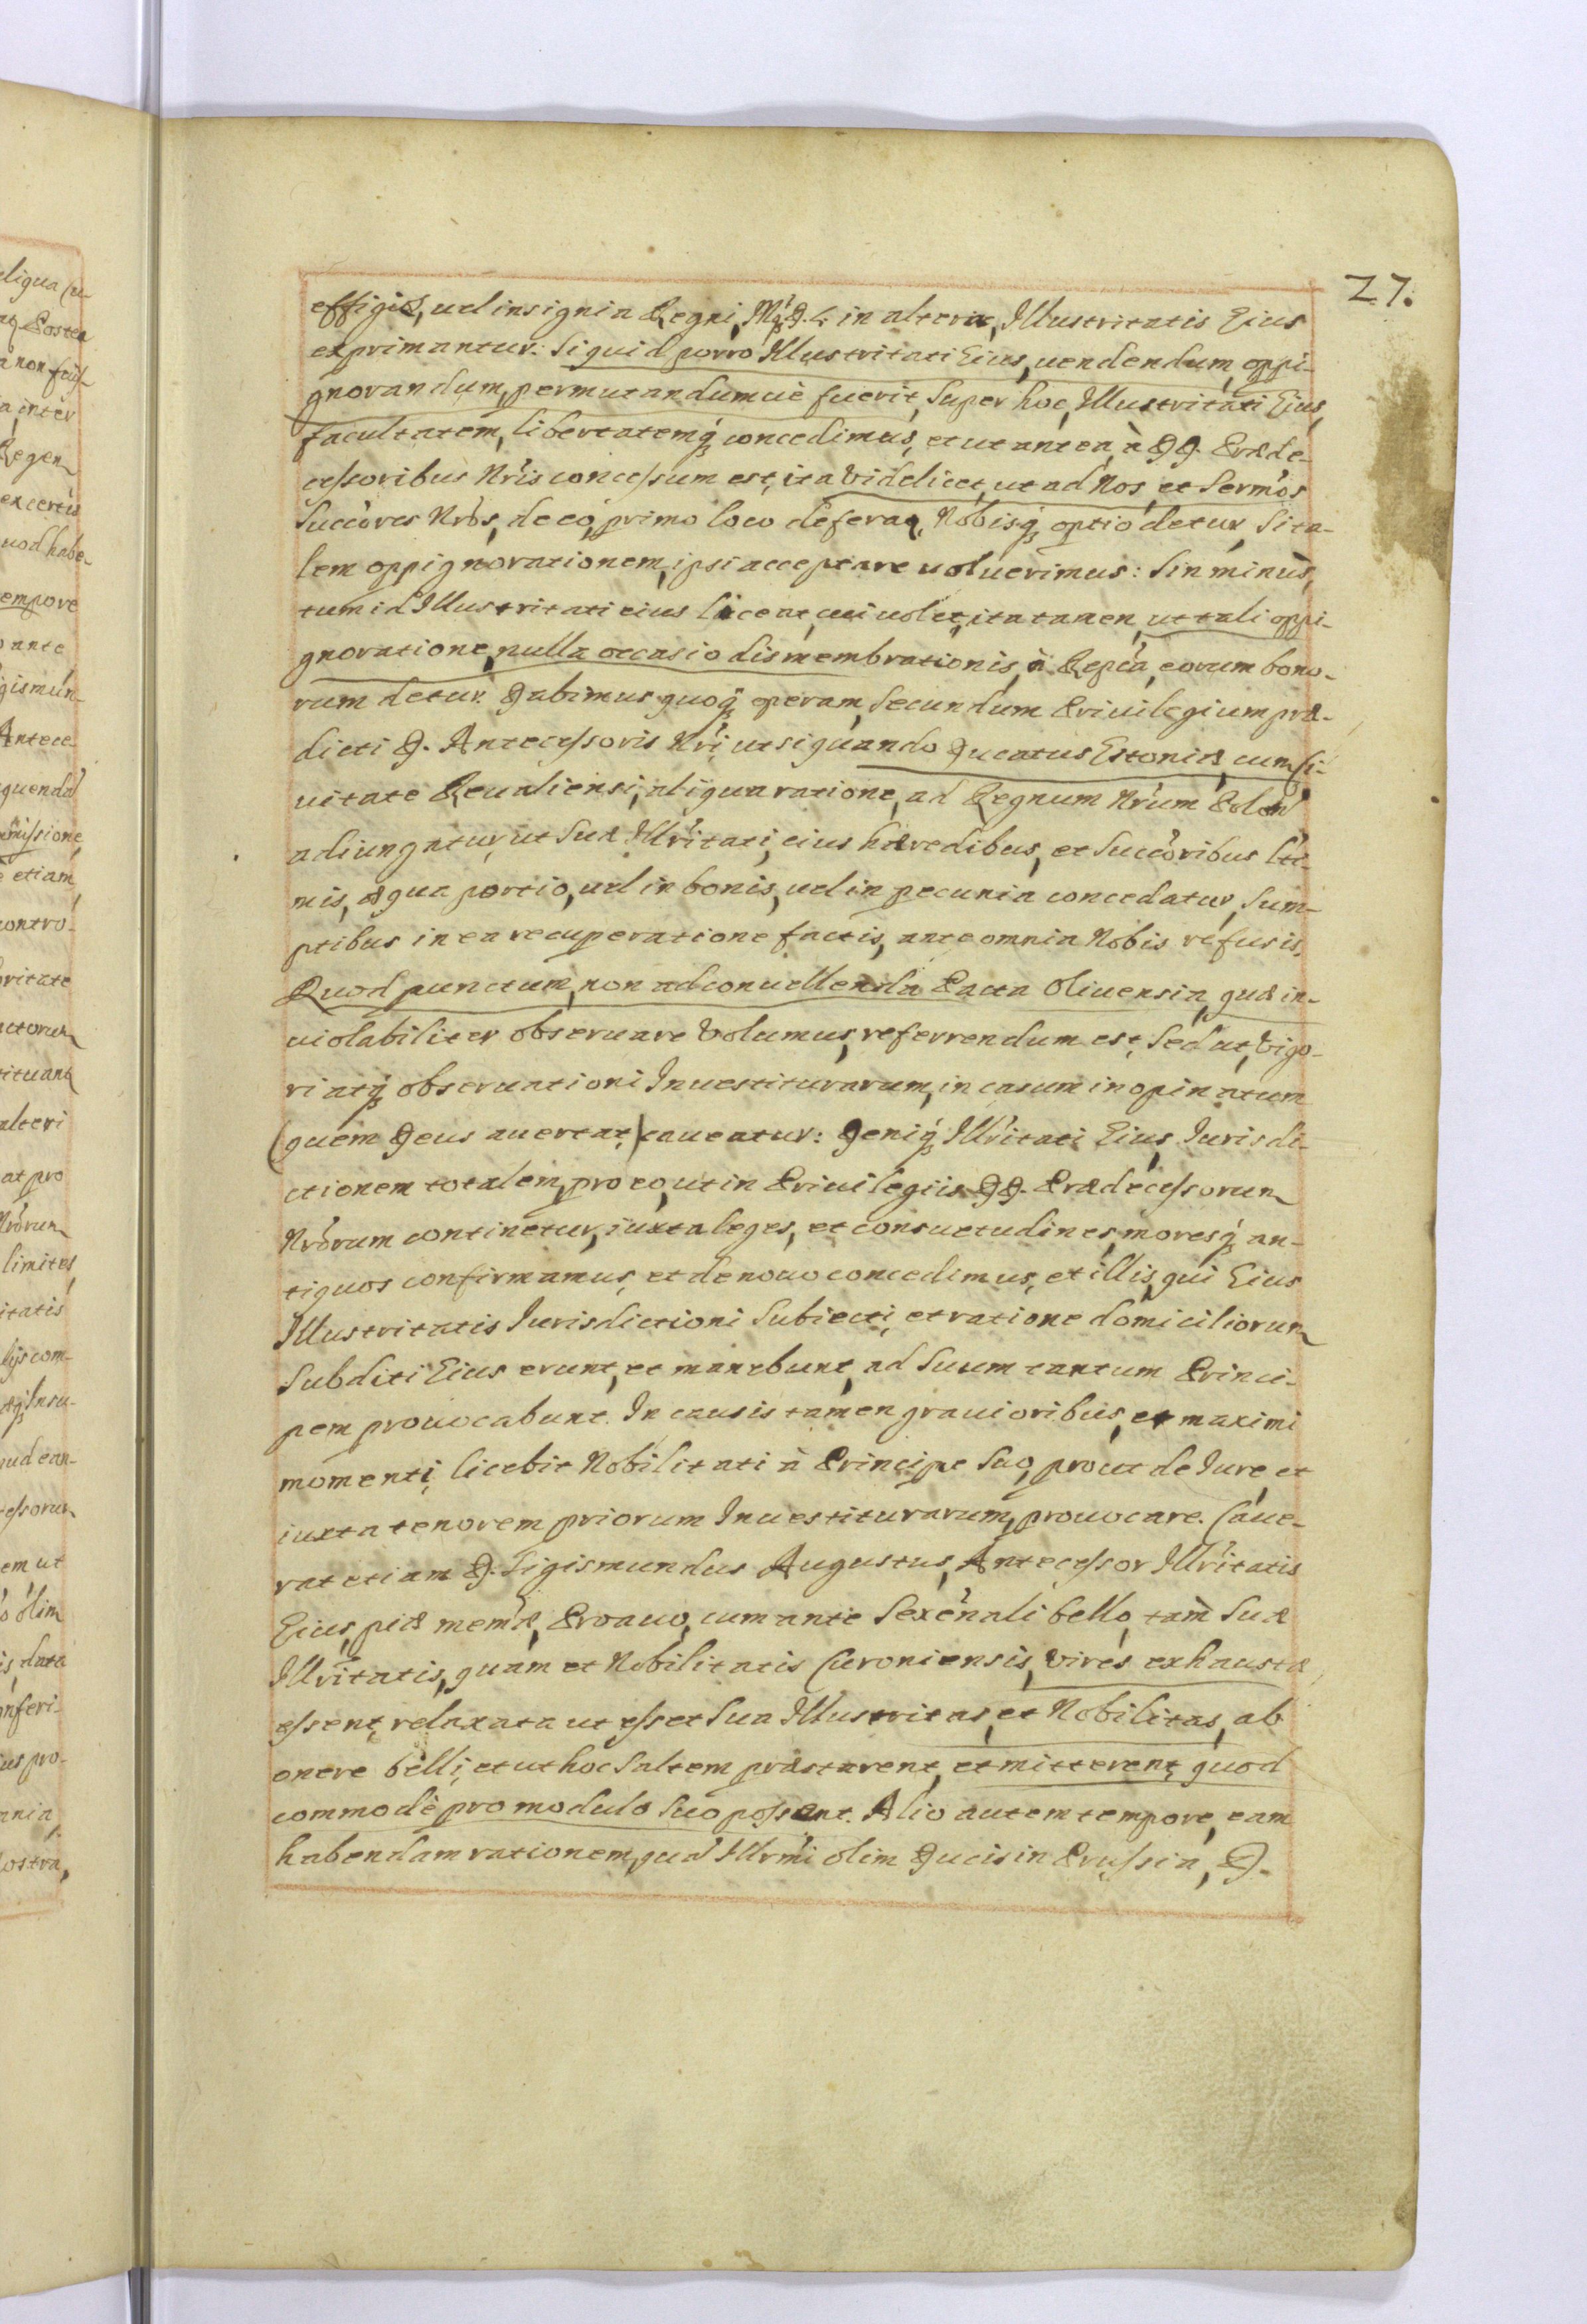 27.
effigies, uel insignia Regni, Mq́; D. L. in altera, Illustritatis Eius
exprimantur: Siquid porro Illustritati Eius, uendendum, oppi-
gnorandum, permutandumuè fuerit, Super hoc, Illustritati Eius,
facultatem, libertatemq́; concedimus, et ut antea, à DD. Præde-
cessoribus Nr̃is concessum est, ita Videlicet, ut ad Nos, et Serm̃os
Succõres Nr̃os, de eo, primo loco deferatꝗ, Nobisq́; optio detur, Si ta-
lem oppignorationem, ipsi acceptare uoluerimus: Sin minùs,
tum id Illustritati eius liceat, cui uolet, ita tamen, ut tali oppi-
gnoratione, nulla occasio dismembrationis, à Repĩca, eorum bono-
rum detur. Dabimus quoq́; operam, Secundum Priuilegium præ-
dicti D. Antecessoris Nr̃i, ut si quando Ducatus Estoniæ, cum Ci-
uitate Reualiensi, aliqua ratione, ad Regnum Nr̃um Polon̄
adiungatur, ut Suæ Illr̃itati, eius hæredibus, et Succõribus Lti-
mis, æqua portio, uel in bonis, uel in pecunia concedatur, Sum-
ptibus in ea recuperatione factis, ante omnia Nobis refusis.
Quod punctum, non ad conuellenda Pacta Oliuensia, quæ in-
uiolabiliter obseruare Volumus, referrendum est, Sed ut, Vigo-
ri atq́; obseruationi Inuestiturarum, in casum inopinatum
(quem Deus auertat,) caueatur: Deniq́; Illr̃itati Eius, Iurisdi-
ctionem totalem, pro eo, ut in Priuilegiis DD. Prædecessorum
Nr̃orum continetur, iuxta leges, et consuetudines, moresq́; an-
tiquos confirmamus, et denouo concedimus, et illis, qui Eius
Illustritatis Iurisdictioni Subiecti, et ratione domiciliorum
Subditi Eius erunt, et manebunt, ad Suum tantum Princi-
pem prouocabunt. In causis tamen grauioribus, et maximi
momenti, licebit Nobilitati à Principe Suo, prout de Iure, et
iuxta tenorem priorum Inuestiturarum, prouocare. Caue-
rat etiam D. Sigismundus Augustus, Antecessor Illr̃itatis
Eius, piæ mem̃æ, Proauo, cum ante Sexennali bello, tam Suæ
Illr̃itatis, quam et Nobilitatis Curoniensis, Vires exhaustæ
essent, relaxata ut esset Sua Illustritas, et Nobilitas, ab
onere belli, et ut hoc Saltem præstarent, et mitterent, quod
commodè pro modulo Suo possent. Alio autem tempore, eam
habendam rationem, quã Illrm̃i olim Ducis in Prussia, D.